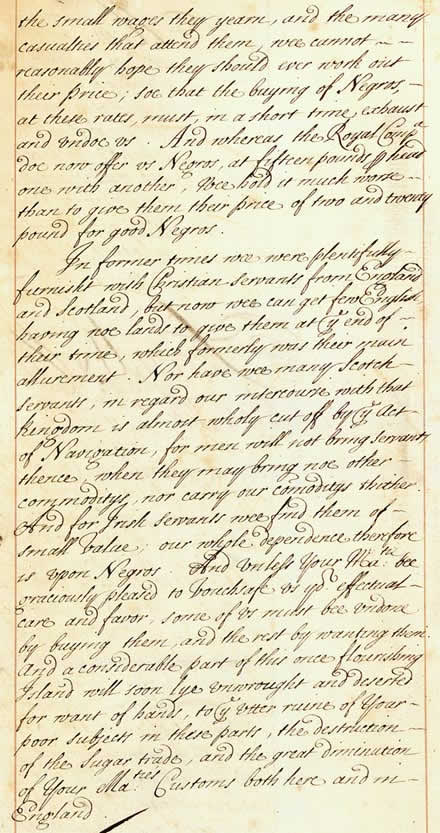 the small wages they yearn, and the many
casualties that attend them, wee cannot - -
reasonably hope they should ever work out
their price; soe that the buying of Negros, -
at these rates, must, in a short time, exhaust
and vndoe vs. And whereas the Royal Comp.a
doe now offer vs Negros, at fifteen pounds p head
one with another; Wee hold it much worse -
than to give them their price of two and twenty
pound for good Negros.
In former times wee were plentifully -
furnisht with Christian servants from England
and Scotland; but now wee can get few English
having noe lands to give them at ye end of -
their time, which formerly was their main
allurement. Nor have wee many Scotch -
servants, in regard our intercourse with that
Kingdom is almost wholy cut off by ye Act
of Navigation; for men will not bring servants
thence, when they may bring noe other
commoditys, nor carry our comoditys thither.
And for Irish servants wee find them of -
small value; our whole dependence therefore
is vpon Negros. And vnless Your Ma.tie bee
graciously pleased to vouchsafe vs yor effectual -
care and favor, some of vs must bee vndone
by buying them, and the rest by wanting them.
And a considerable part of this once flourishing
Island will soon lye vnwrought and deserted
for want of hands, to ye vtter ruine of Your -
poor subjects in these parts, the destruction -
of the sugar trade, and the great diminution
of Your Ma.ties Customs both here and in -
England.